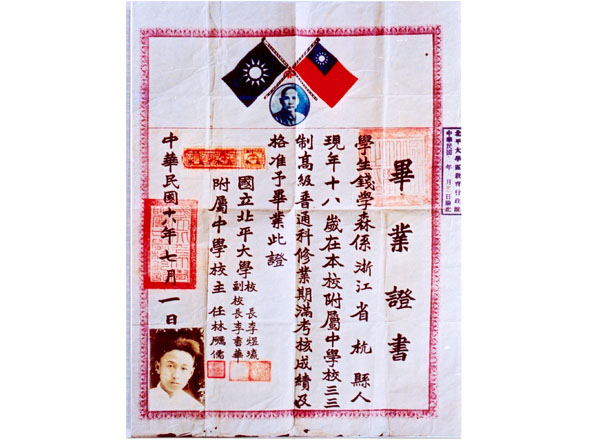 畢業證書
學生錢學森係浙江省杭縣人
現年十八歲在本校附屬中學校三三
制高級普通科修業期滿考核成績及
格准予畢業此證
國立北平大學校長李煜瀛
副校長李書華
附屬中學校主任林礪儒
中華民國十八年七月一日
北平大學區教育行政院
中華民國 年 月 日驗訖